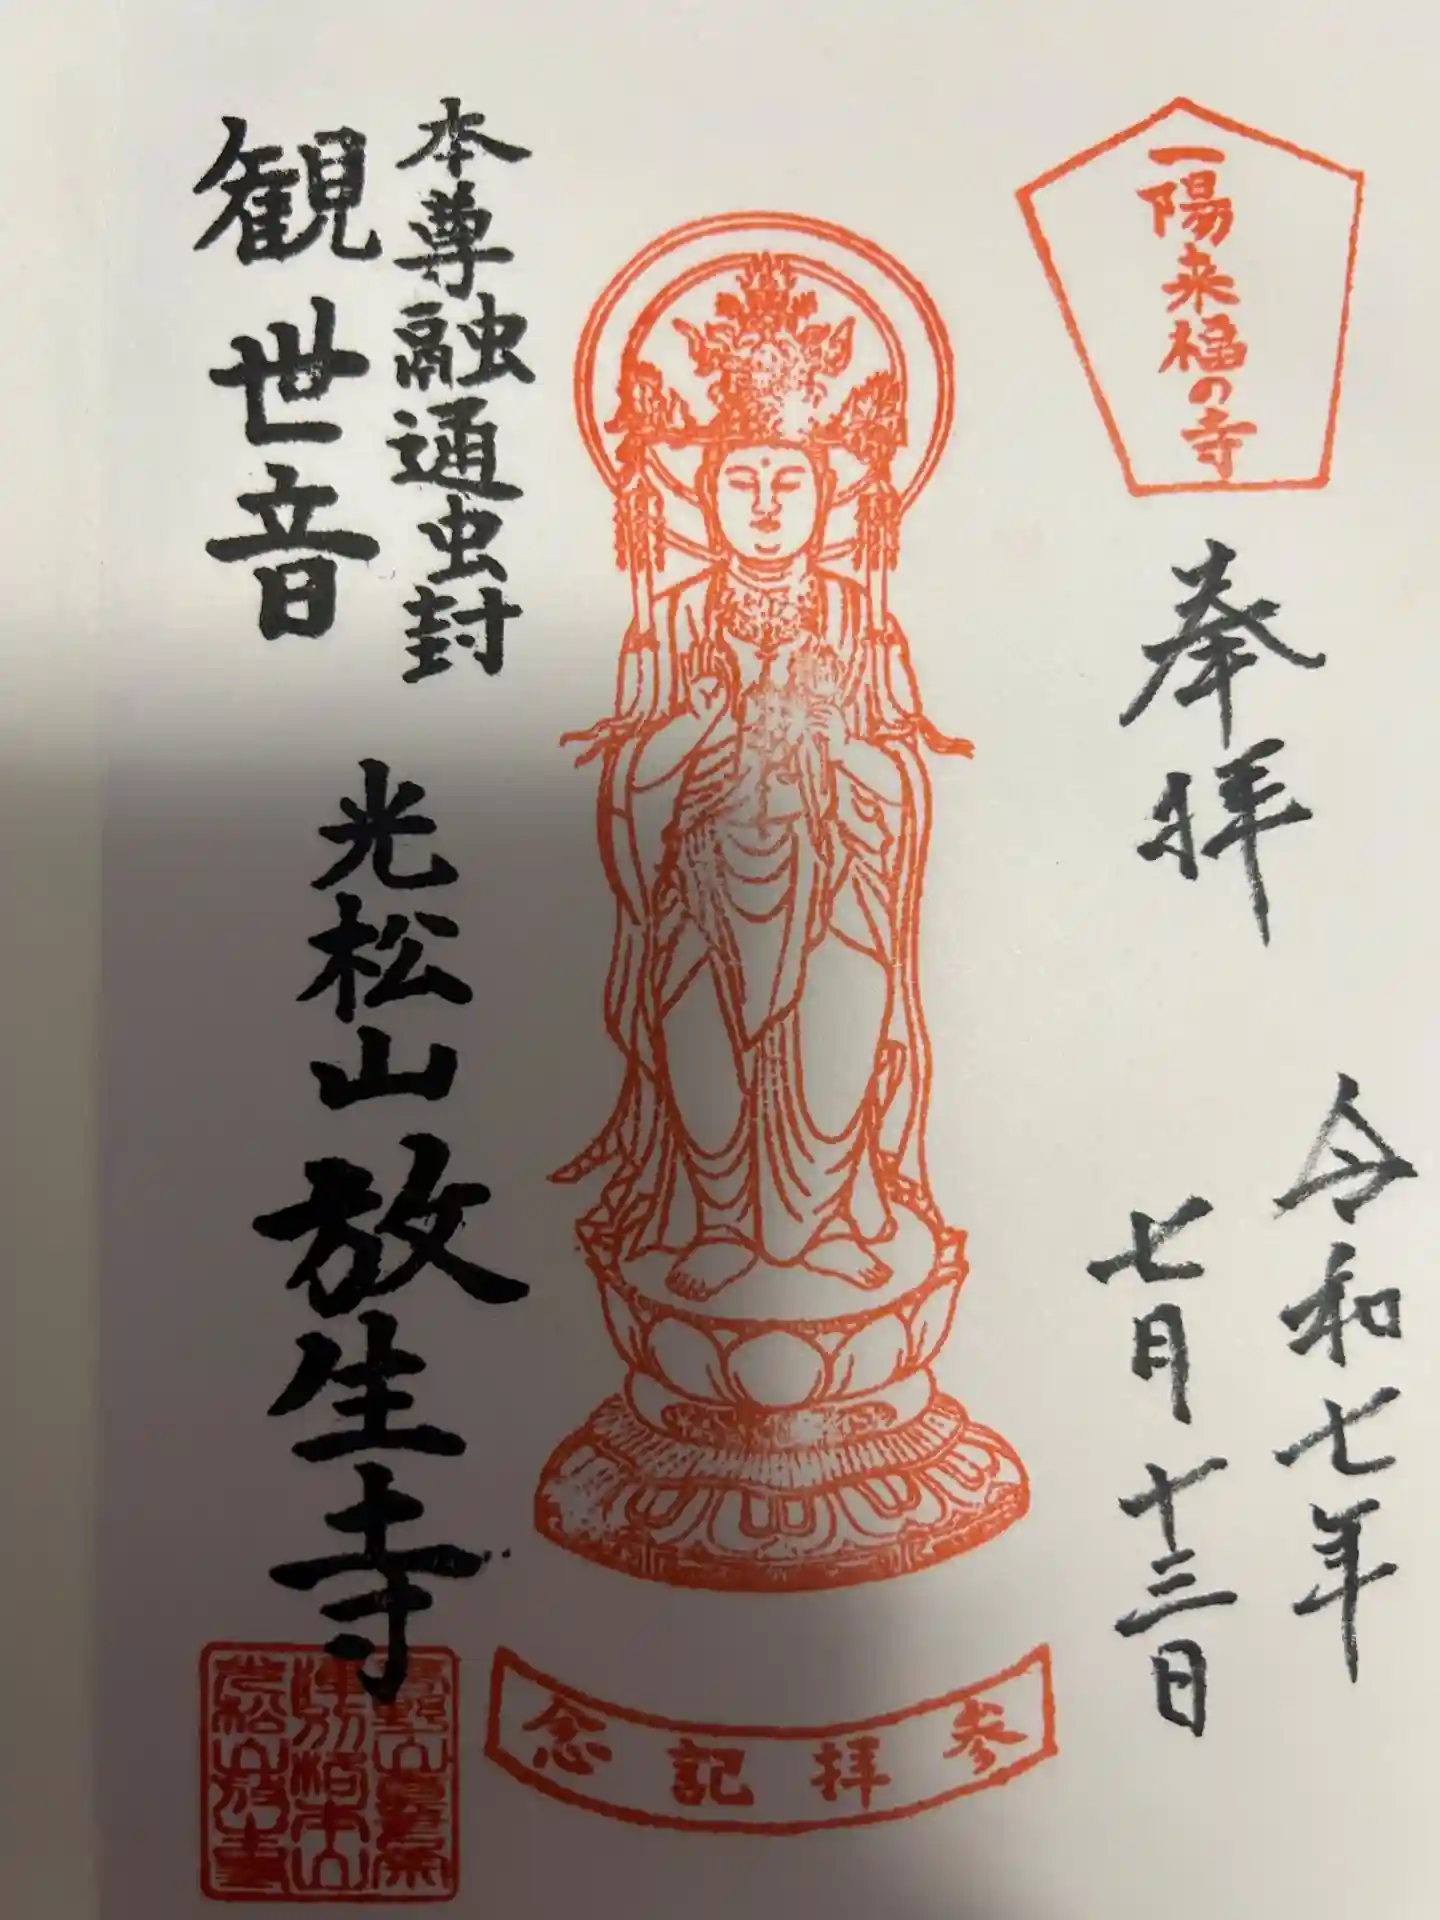 一陽来福の寺
奉拝
令和七年
七月十三日
本尊融通虫封
観世音
光松山放生寺
参拝記念